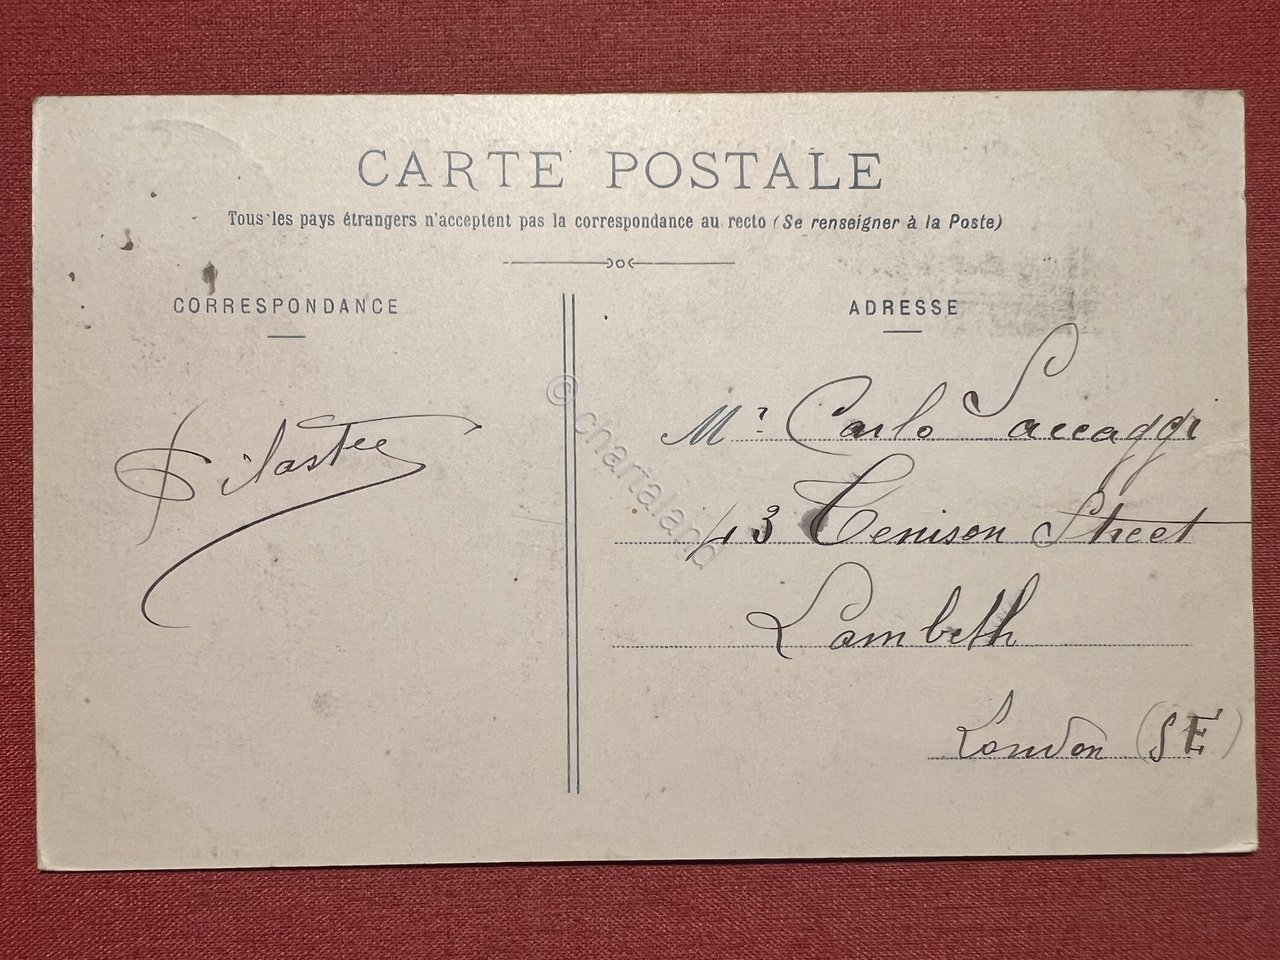 CARTE POSTALE
Tous les pays étrangers n'acceptent pas la correspondance au recto (Se renseigner à la Poste)
CORRESPONDANCE
ADRESSE
Mr Carlo Saccaggi
43 Tenison Street
Lambeth
London (SE)
© chartaland